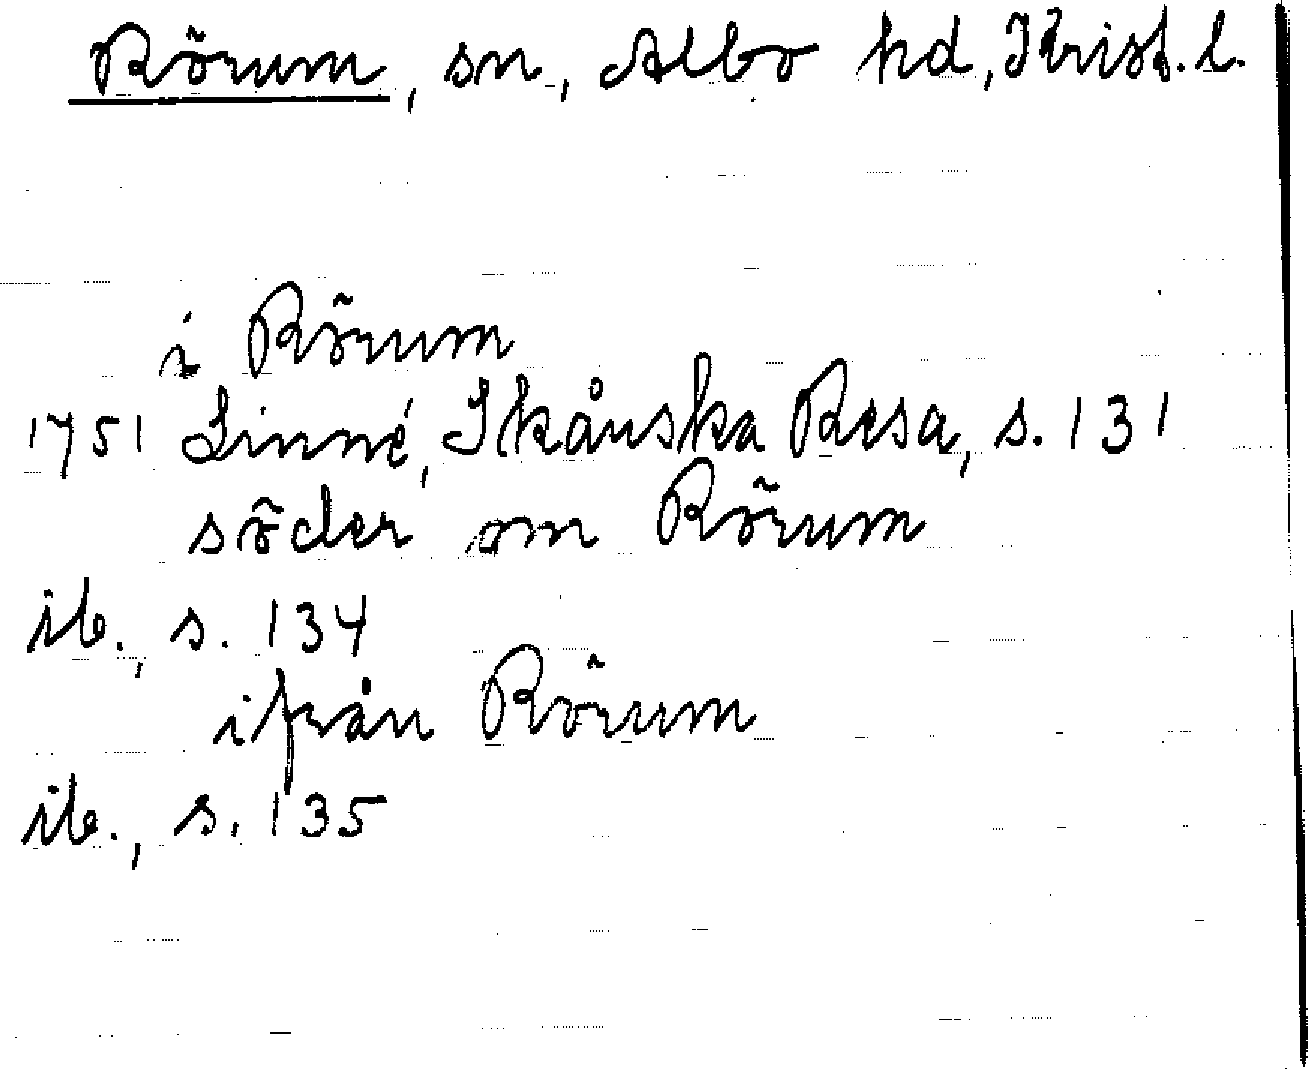 Rörum, sn, Albo hd, Krist. l.
i Rörum
1751 Linné, Skånska Resa, s. 131
söder om Rörum
ib., s. 134
ifrån Rörum
ib., s. 135